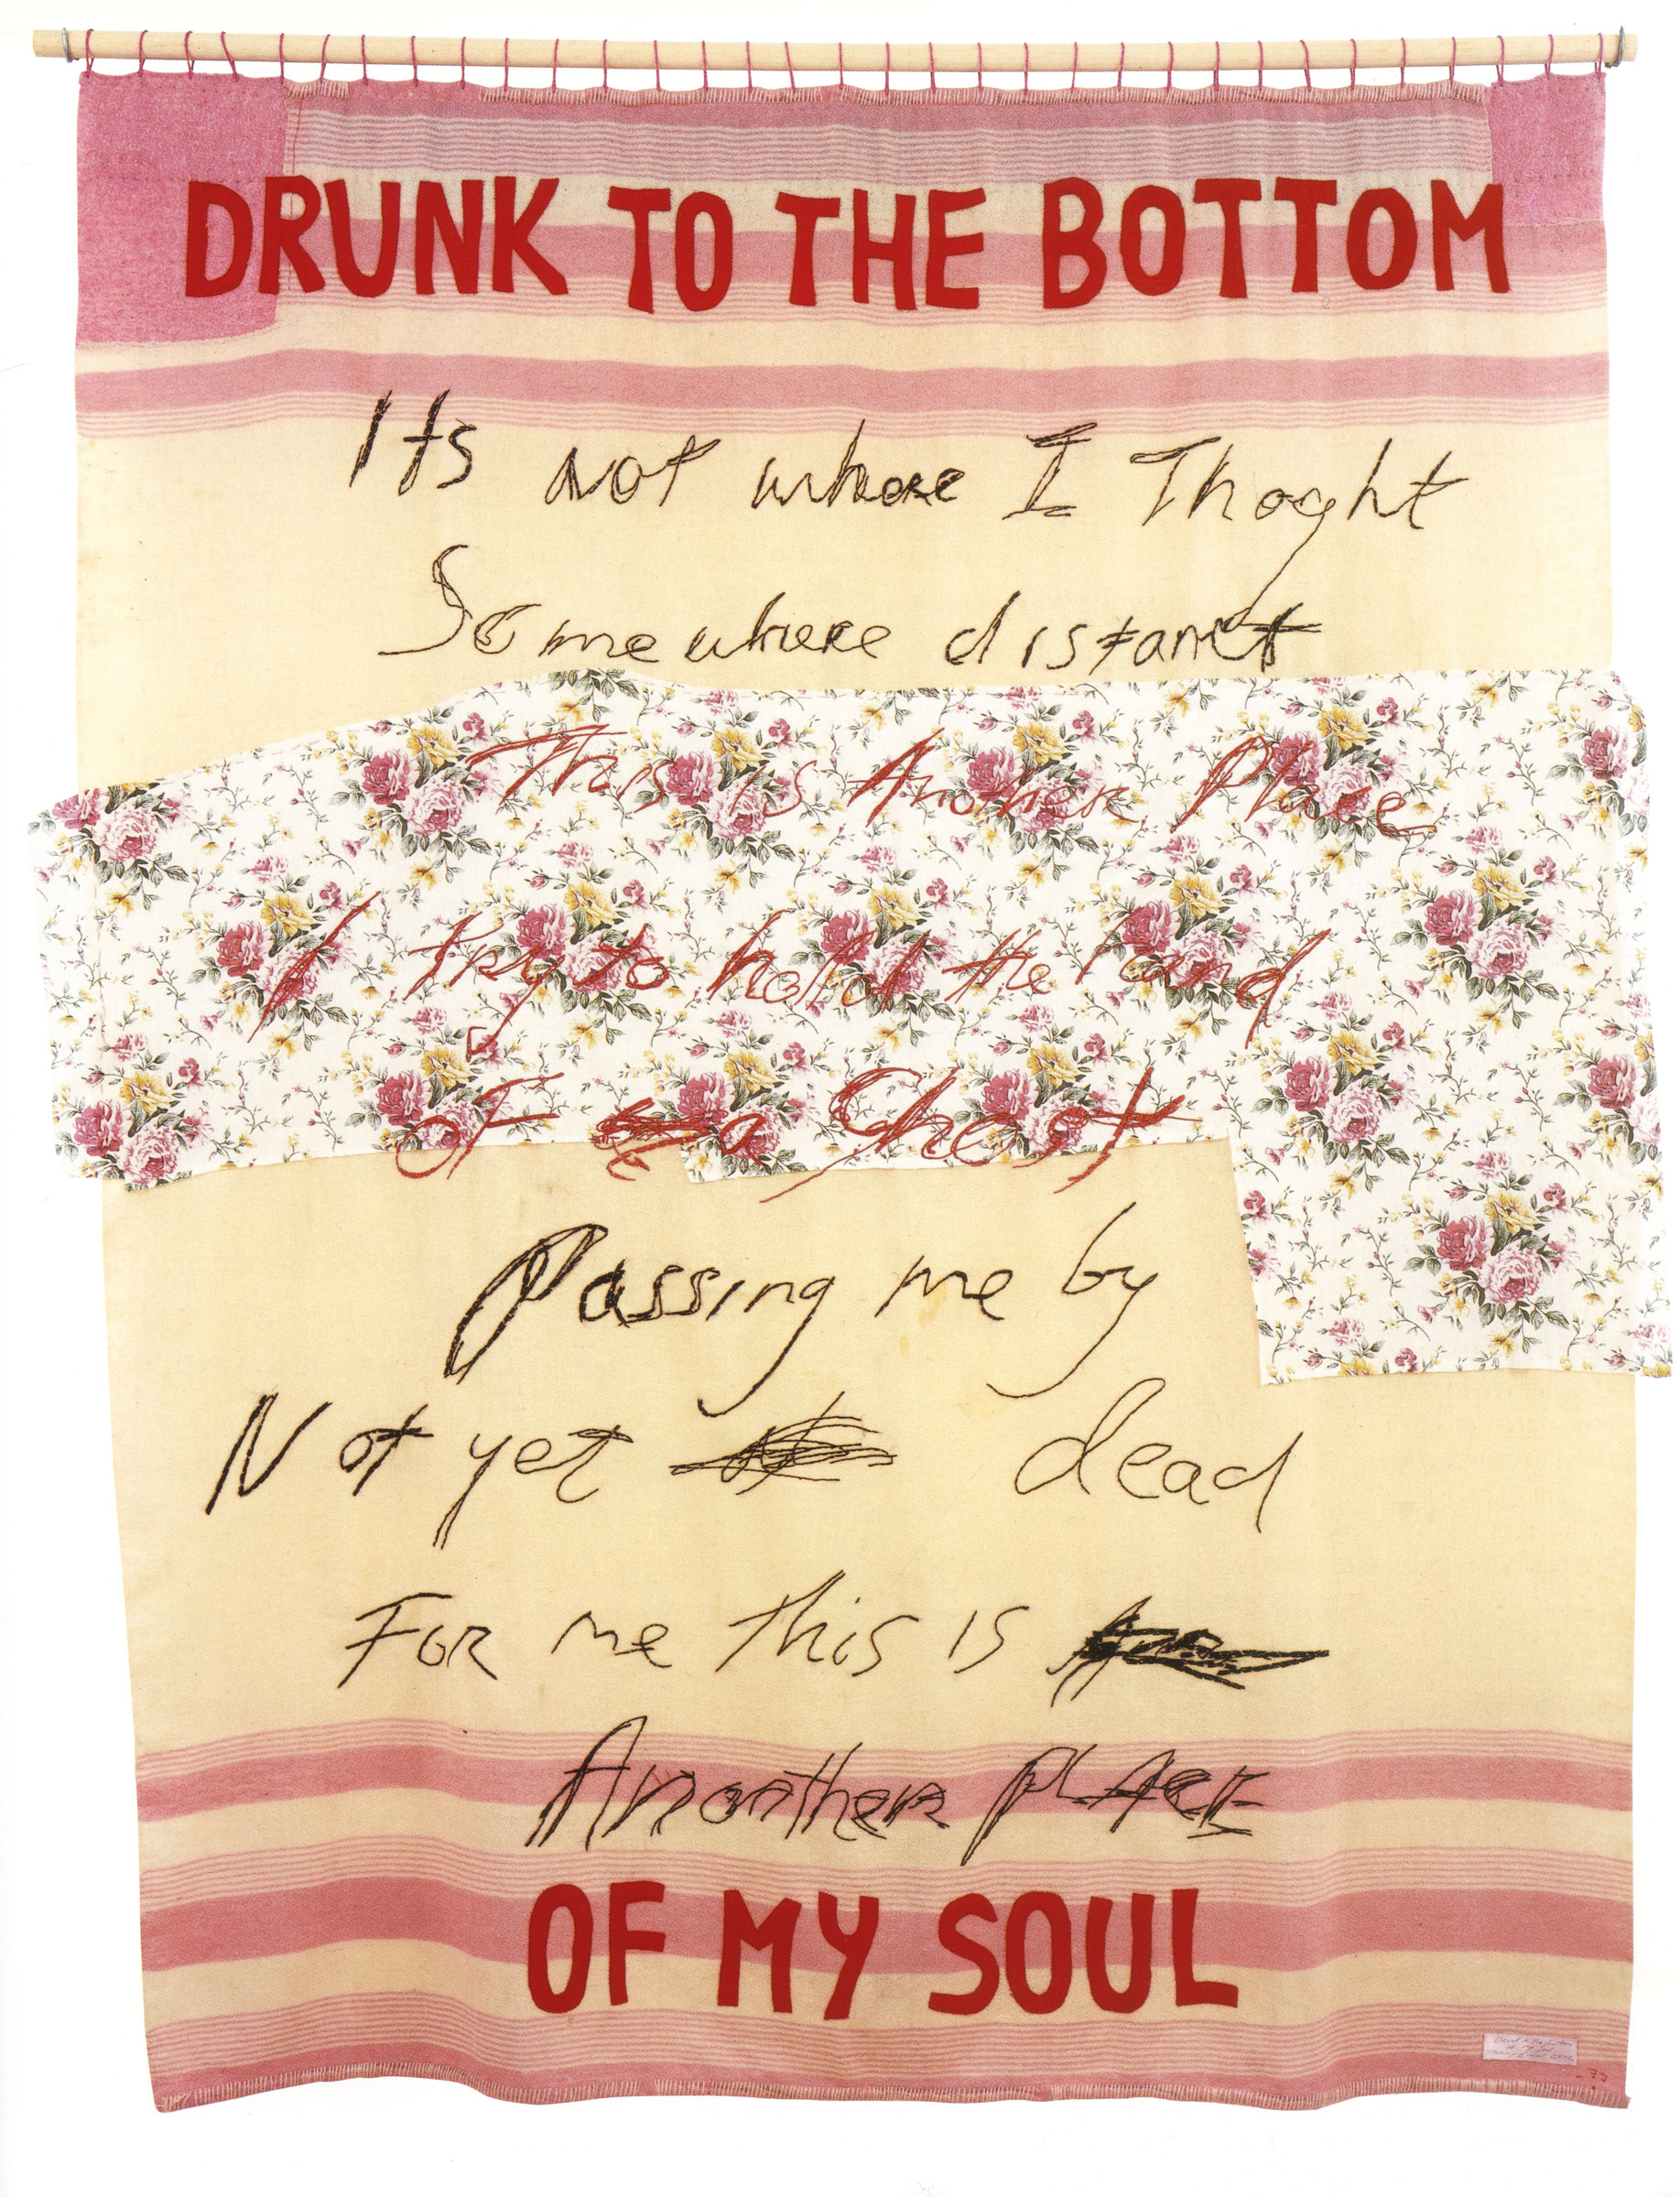 DRUNK TO THE BOTTOM
Its not where I Thoght
Somewhere distant
This is Another Place
I try to hold the hand
of a Ghost
Passing me by
Not yet dead
For me this is
Anonther PLACE
OF MY SOUL